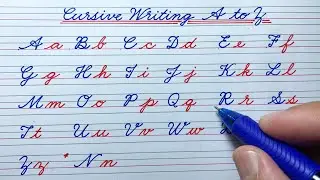 Cursive Writing A to Z
A a B b C c D d E e F f
G g H h I i J j K k L l
M m O o P p Q q R r S s
T t U u V v W w
Z z * N n